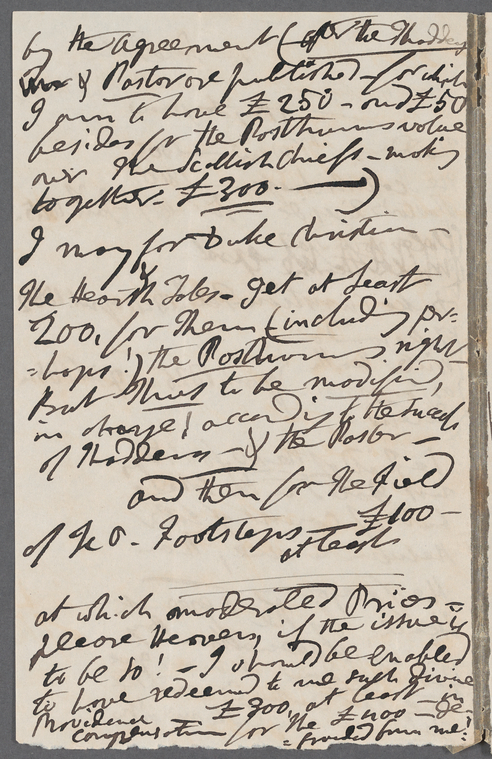 by the agreement (after the Thaddeus
& Pastor are published - for which
I am to have £250 - and £50
besides for the Posthumous value
over the Scottish Chiefs - making
together - £300 - )
I may for Duke Christian -
&
the Hearth Tales - get at least
200, for them (including per=
=haps!) the Posthumous right
But this to be modified,
in charge! according to the success
of Thaddeus - & the Pastor -
and then for the Field
of 40. Footsteps - £100 -
at least
at which moderated Prices =
please Heaven, if the issue is
to be so! - I should be enabled
to have redeemed to me such divine
Providence £300, at least - in
compensation for the £400 - de=
=frauded from me!